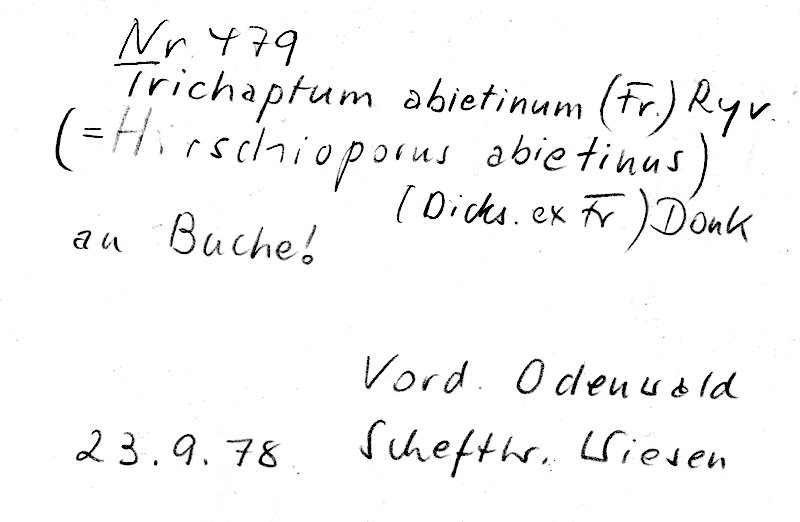 Nr 479
Trichaptum abietinum (Fr.) Ryv.
(= Hirschioporus abietinus)
(Dicks. ex Fr) Donk
an Buche!
Vord. Odenwald
23.9.78 Schefthr. Wiesen